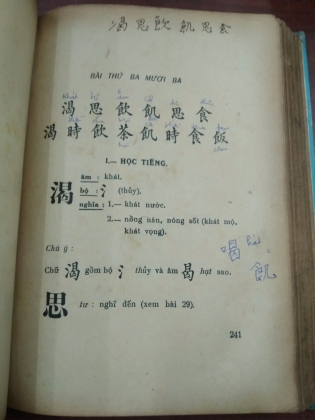 渴思飲飢思食
BÀI THỨ BA MƯƠI BA
渴思飲飢思食
渴時飲茶飢時食飯
I.— HỌC TIẾNG.
渴 âm : khát.
bộ : 氵(thủy).
nghĩa : 1.— khát nước.
2.— nồng nàn, nóng sốt (khát mộ,
khát vọng).
Chú ý :
Chữ 渴 gồm bộ 氵 thủy và âm 曷 hạt sao.
喝 hát
飢
思 tư : nghĩ đến (xem bài 29).
241